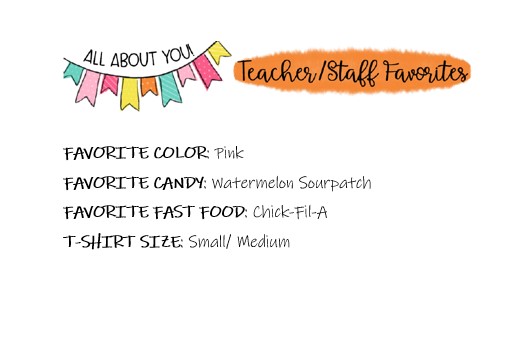 ALL ABOUT YOU!
Teacher/Staff Favorites
FAVORITE COLOR: Pink
FAVORITE CANDY: Watermelon Sourpatch
FAVORITE FAST FOOD: Chick-Fil-A
T-SHIRT SIZE: Small/ Medium